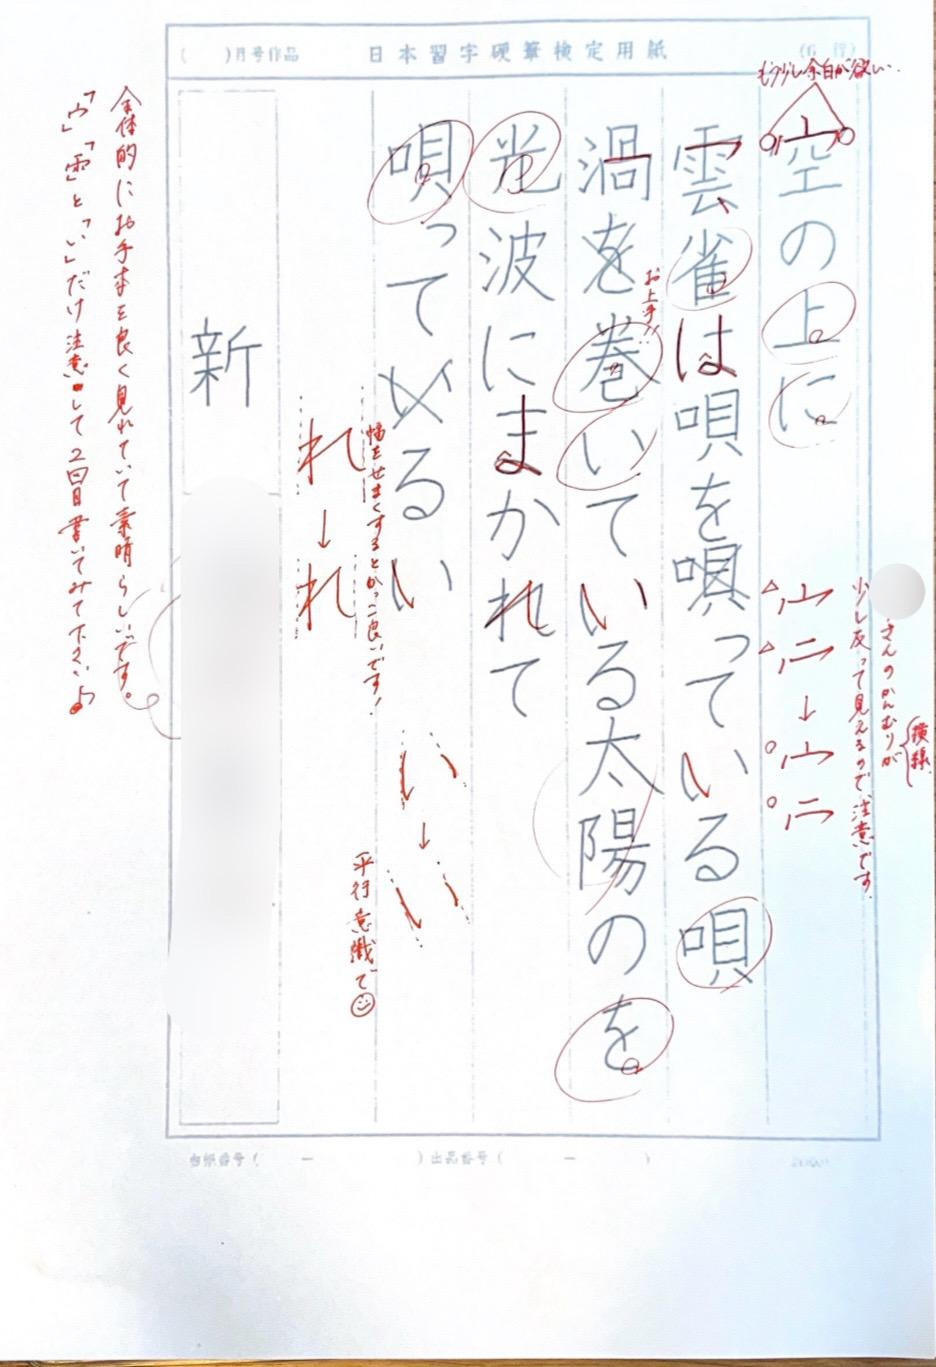 ( )月号作品 日本習字硬筆検定用紙 (6 行)
もう少し余白が欲しい.
空の上に
雲雀は唄を唄っている唄
渦を巻いている太陽のを
お上手!!
光波にまかれて
唄っているい
新
さんのかんむりが
{横線
少し反って見えるので、注意です.
れ→れ
幅をせまくするとかっこ良いです!
い→い
平行意識で
全体的にお手本を良く見れていて素晴らしいです。
「宀」「雨」と「い」だけ注意して2回目書いてみて下さい♪
台紙番号( ー )出品番号( ー )